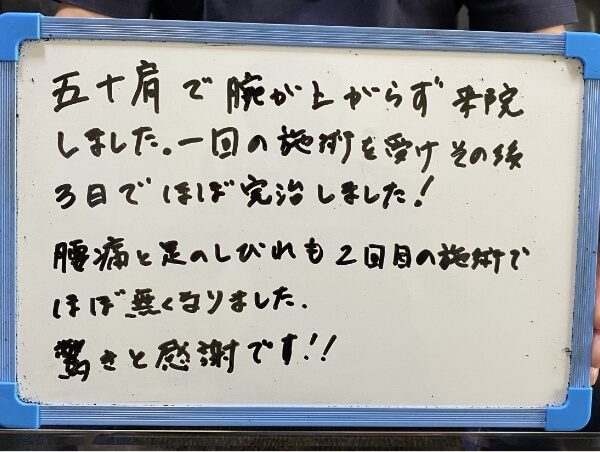 五十肩で腕が上がらず来院
しました。一回の施術を受けその後
3日でほぼ完治しました!
腰痛と足のしびれも2回目の施術で
ほぼ無くなりました.
驚きと感謝です!!